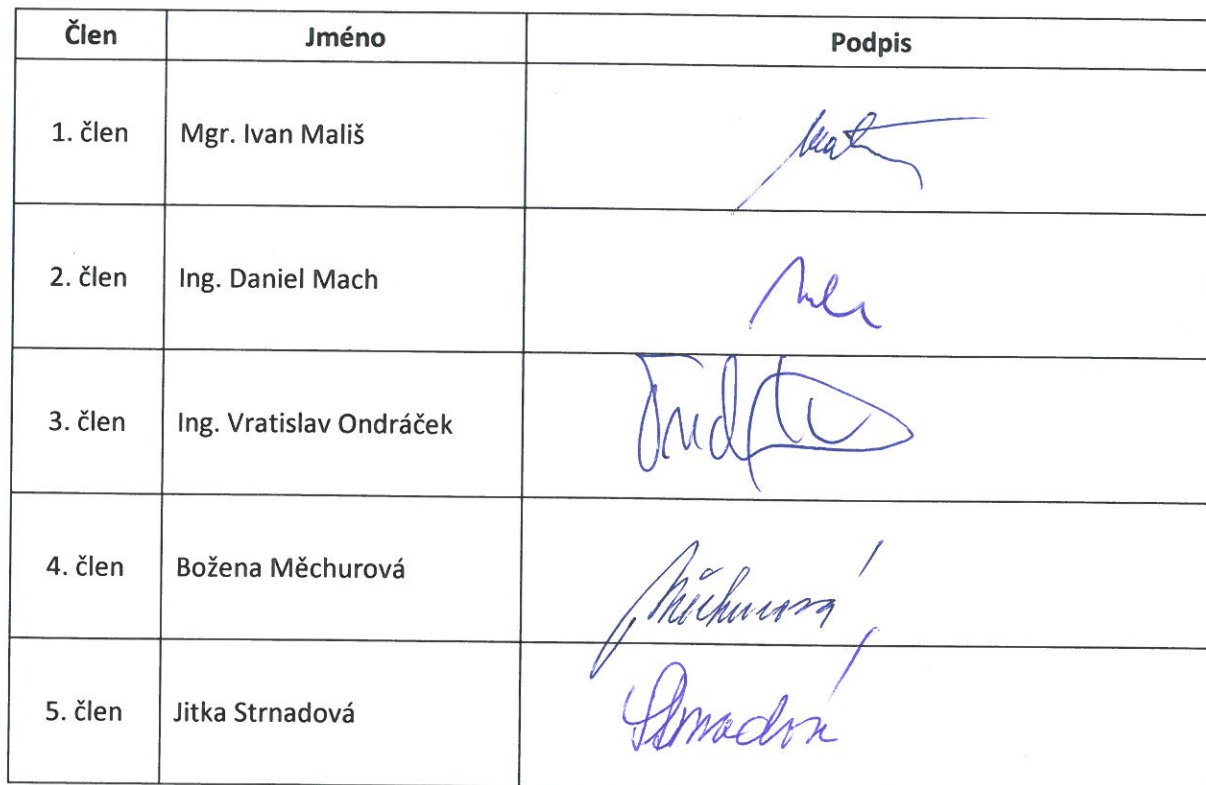 Člen Jméno Podpis
1. člen Mgr. Ivan Mališ
2. člen Ing. Daniel Mach
3. člen Ing. Vratislav Ondráček
4. člen Božena Měchurová Měchurová
5. člen Jitka Strnadová Strnadová